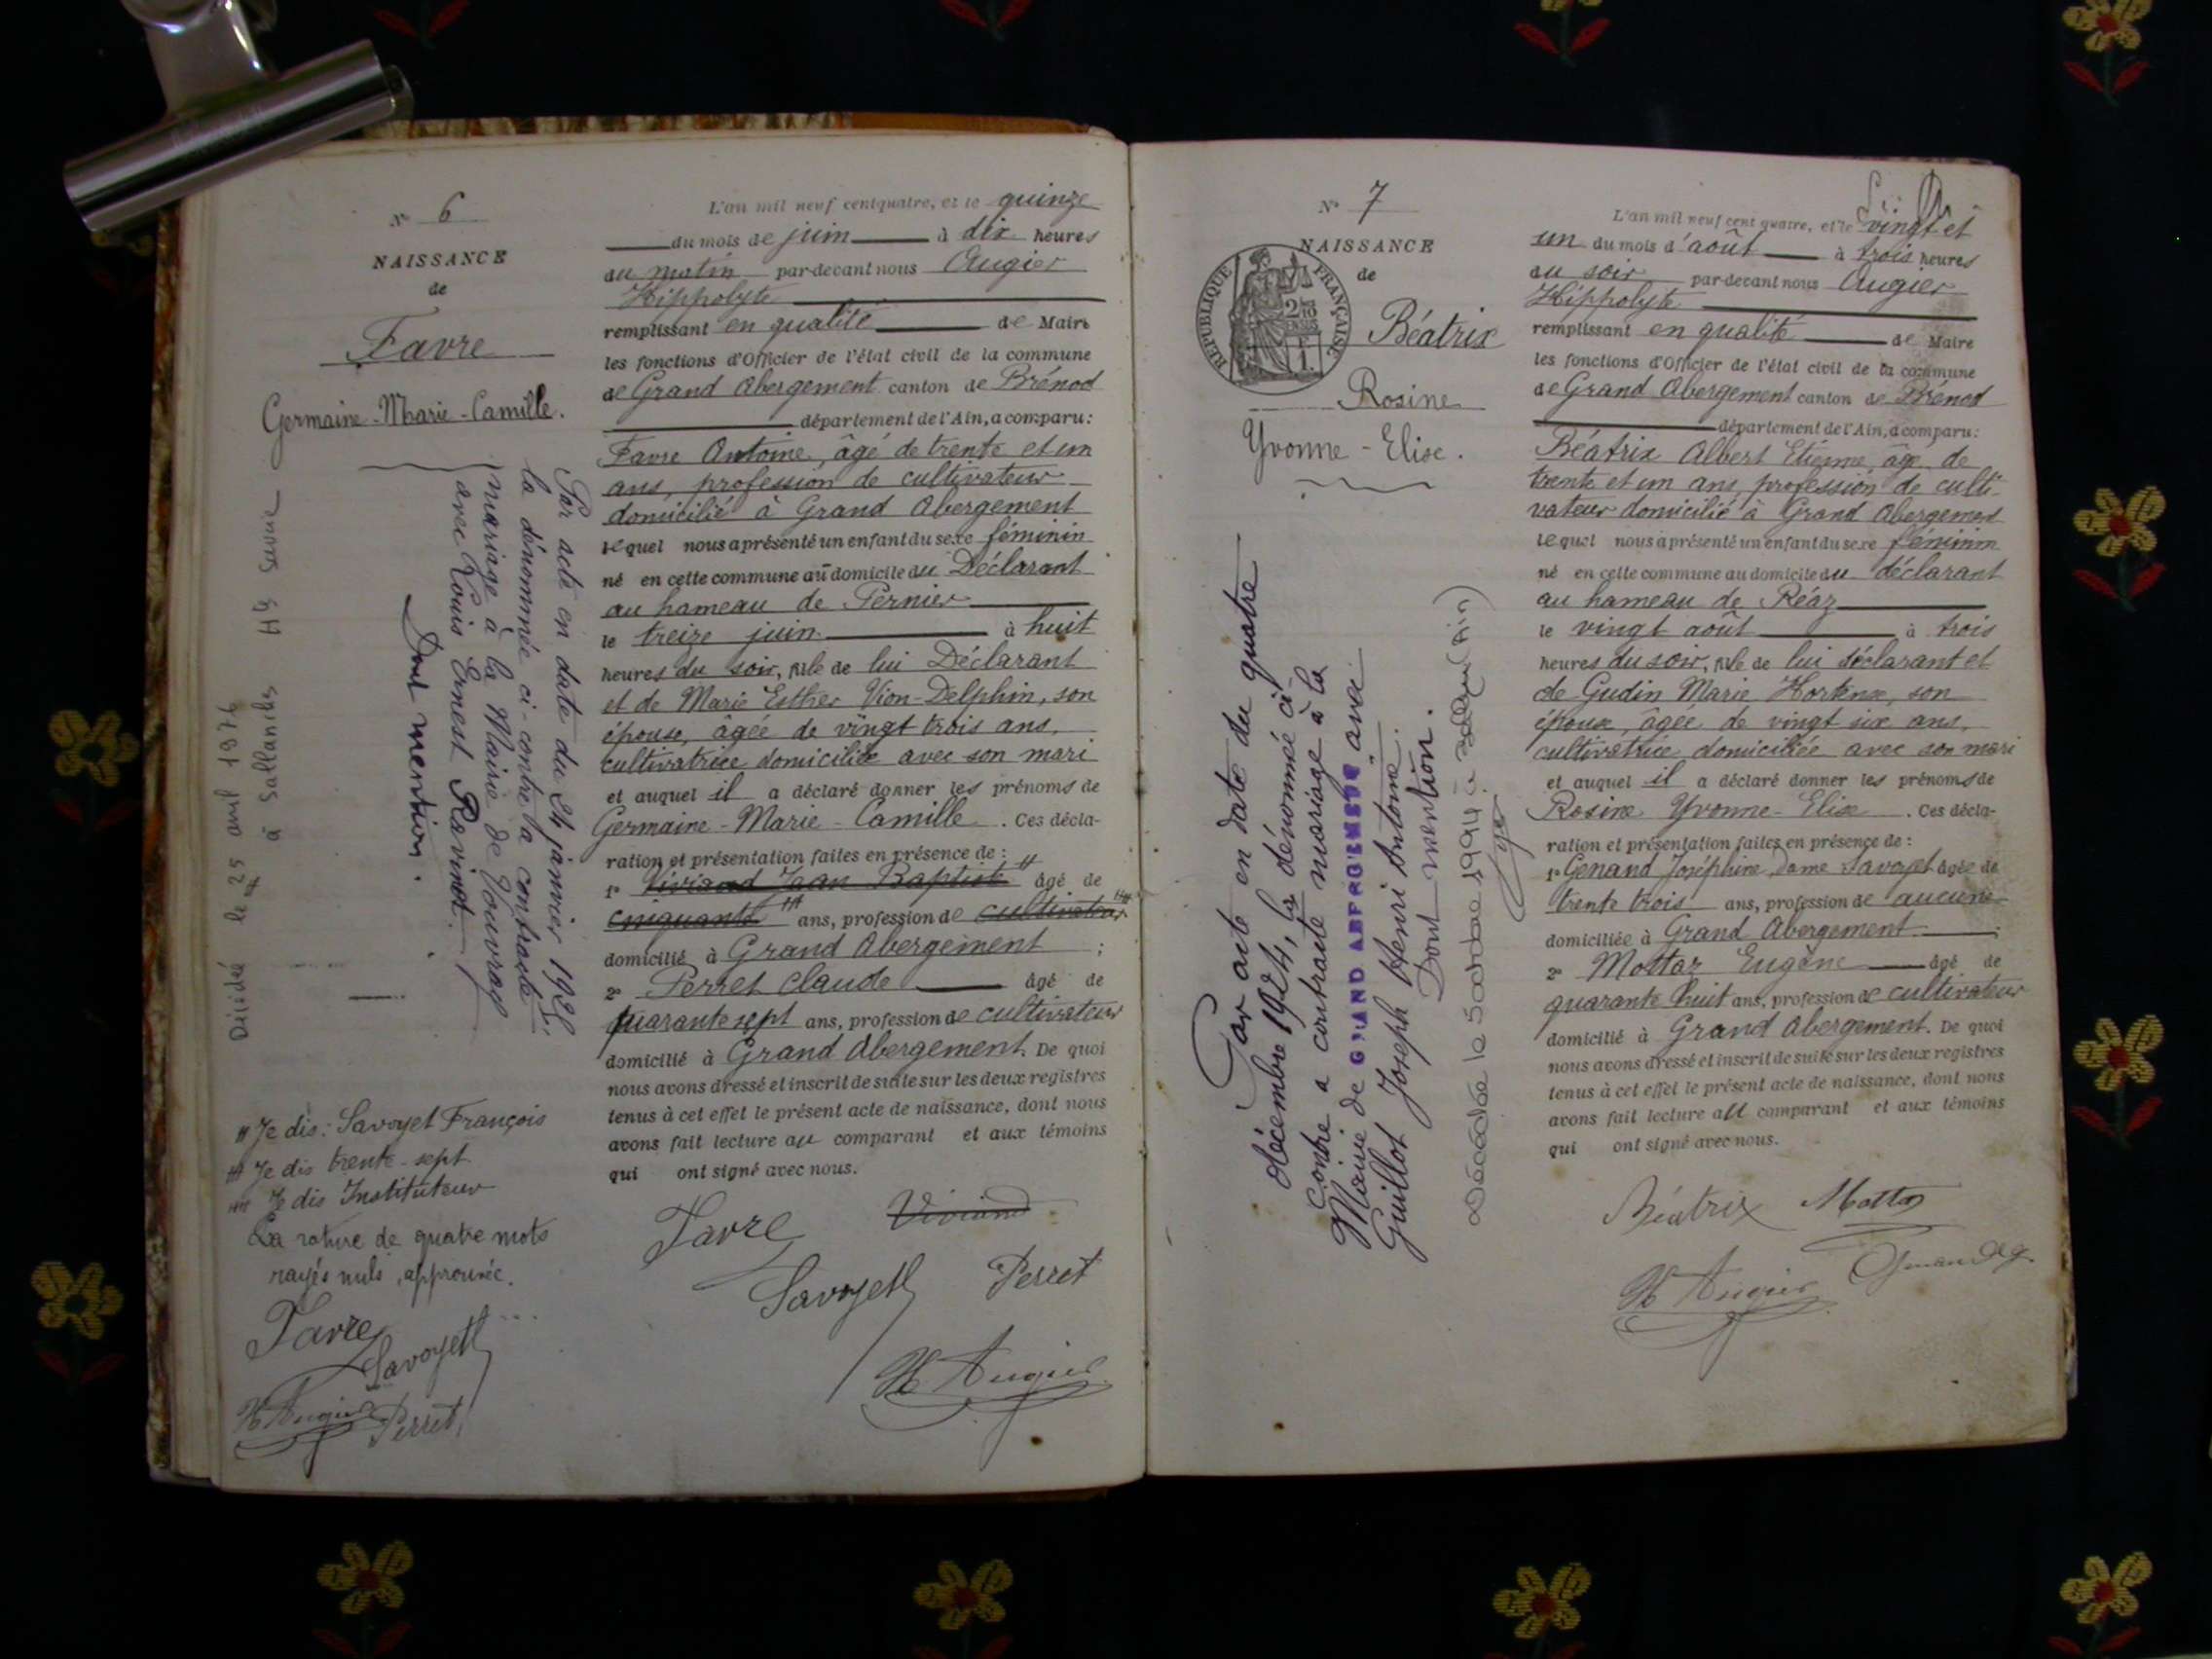 N° 6
NAISSANCE
de
Favre
Germaine-Marie-Camille.
Par acte en date du 24 janvier 1925,
la dénommée ci-contre a contracté
mariage à la Mairie de
avec Louis Ernest Ravinet.
Dont mention.
Décédée le 25 avril 1976
à Sallanches Hte Savoie
# Je dis: Savoyet François
## Je dis trente-sept
### Je dis Instituteur
La rature de quatre mots
rayés nuls, approuvée.
Favre
Savoyet
H Augier
Perret
L'an mil neuf cent quatre, et le quinze
du mois de juin à dix heures
du matin par-devant nous Augier
Hippolyte
remplissant en qualité de Maire
les fonctions d'Officier de l'état civil de la commune
de Grand Abergement canton de Brénod
département de l'Ain, a comparu:
Favre Antoine, âgé de trente et un
ans, profession de cultivateur
domicilié à Grand Abergement
lequel nous a présenté un enfant du sexe féminin
né en cette commune au domicile du Déclarant
au hameau de Pernier
le treize juin à huit
heures du soir, fille de lui Déclarant
et de Marie Esther Vion-Delphin, son
épouse, âgée de vingt trois ans,
cultivatrice domiciliée avec son mari
et auquel il a déclaré donner les prénoms de
Germaine-Marie-Camille. Ces décla-
ration et présentation faites en présence de:
1° Viviand Jean Baptiste # âgé de
cinquante ## ans, profession de cultivateur ###
domicilié à Grand Abergement;
2° Perret Claude âgé de
quarante sept ans, profession de cultivateur
domicilié à Grand Abergement. De quoi
nous avons dressé et inscrit de suite sur les deux registres
tenus à cet effet le présent acte de naissance, dont nous
avons fait lecture au comparant et aux témoins
qui ont signé avec nous.
Favre Viviand
Savoyet Perret
H Augier
N° 7
NAISSANCE
de
RÉPUBLIQUE FRANÇAISE
Béatrix
Rosine
Yvonne-Elise.
Par acte en date du quatre
décembre 1924, la dénommée ci-
contre a contracté mariage à la
Mairie de GRAND ABERGEMENT avec
Guillot Joseph Henri Antoine.
Dont mention.
Décédée le 5 octobre 1994 à
L'an mil neuf cent quatre, et le vingt et
un du mois d'août à trois heures
du soir par-devant nous Augier
Hippolyte
remplissant en qualité de Maire
les fonctions d'Officier de l'état civil de la commune
de Grand Abergement canton de Brénod
département de l'Ain, a comparu:
Béatrix Albert Etienne, âgé de
trente et un ans, profession de culti-
vateur domicilié à Grand Abergement
lequel nous a présenté un enfant du sexe féminin
né en cette commune au domicile du déclarant
au hameau de Réaz
le vingt août à trois
heures du soir, fille de lui déclarant et
de Gudin Marie Hortense, son
épouse, âgée de vingt six ans,
cultivatrice domiciliée avec son mari
et auquel il a déclaré donner les prénoms de
Rosine Yvonne-Elise. Ces décla-
ration et présentation faites en présence de:
1° Genand Joséphine, Dame Savoyet âgée de
trente trois ans, profession de aucune
domiciliée à Grand Abergement;
2° Mottaz Eugène âgé de
quarante huit ans, profession de cultivateur
domicilié à Grand Abergement. De quoi
nous avons dressé et inscrit de suite sur les deux registres
tenus à cet effet le présent acte de naissance, dont nous
avons fait lecture au comparant et aux témoins
qui ont signé avec nous.
Béatrix Mottaz
H Augier